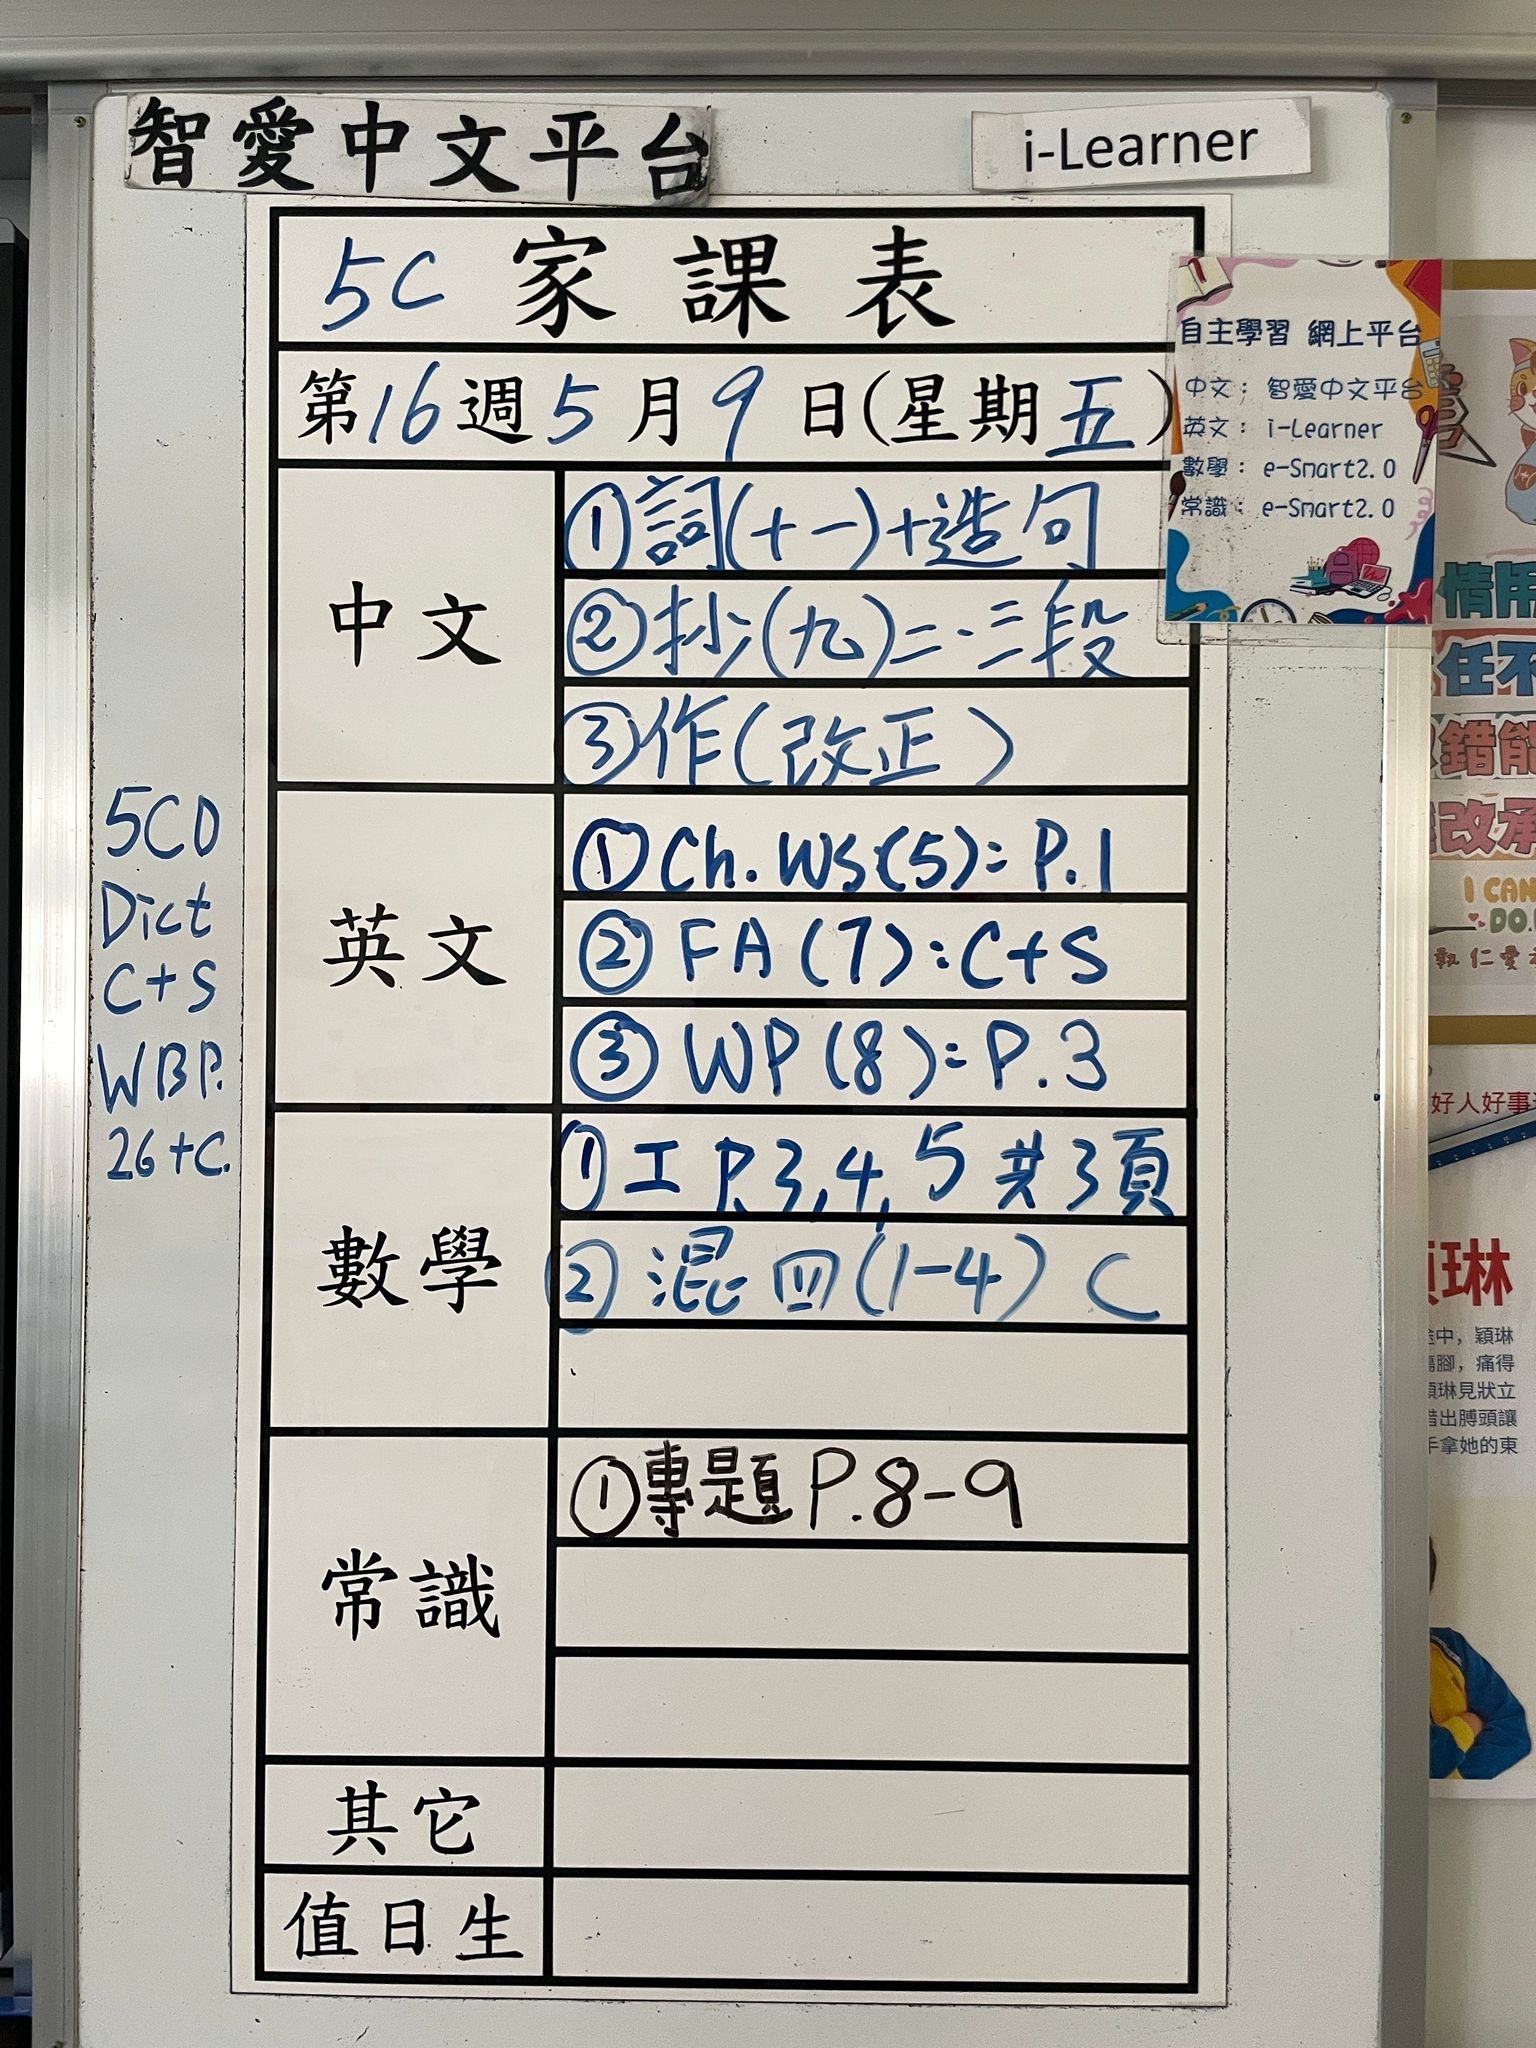 智愛中文平台
i-Learner
5C 家課表
第16週5月9日(星期五)
中文
①詞(十一)+造句
②抄(九)二.三段
③作(改正)
英文
①Ch.WS(5): P.1
②FA(7):C+S
③WP(8):P.3
數學
①工 P.3,4,5共3頁
②混四(1-4) C
常識
①專題P.8-9
其它
值日生
5CD
Dict
C+S
WBP.
26+C.
自主學習 網上平台
中文: 智愛中文平台
英文: i-Learner
數學: e-Smart2.0
常識: e-Smart2.0
情用
任不
錯能
改承
I CAN
DO.
仁愛
好人好事
琳
途中，穎琳
腳，痛得
琳見狀立
借出膊頭讓
手拿她的東